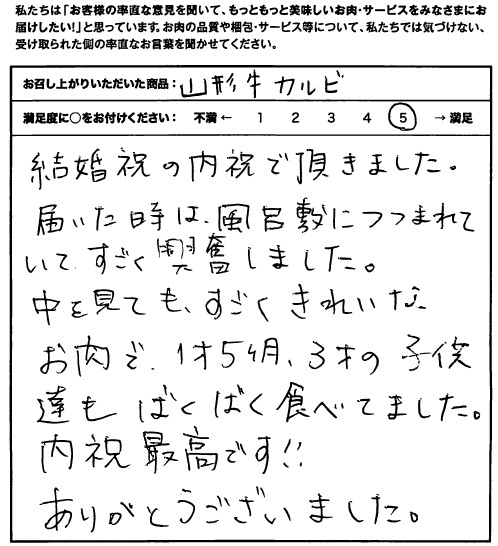 私たちは「お客様の率直な意見を聞いて、もっともっと美味しいお肉・サービスをみなさまにお
届けしたい!」と思っています。お肉の品質や梱包・サービス等について、私たちでは気づけない、
受け取られた側の率直なお言葉を聞かせてください。
お召し上がりいただいた商品：山形牛カルビ
満足度に○をお付けください： 不満 ← 1 2 3 4 5 → 満足
結婚祝の内祝で頂きました。
届いた時は、風呂敷につつまれて
いて、すごく興奮しました。
中を見ても、すごくきれいな
お肉で、1才5ヶ月、3才の子供
達もばくばく食べてました。
内祝最高です!!
ありがとうございました。